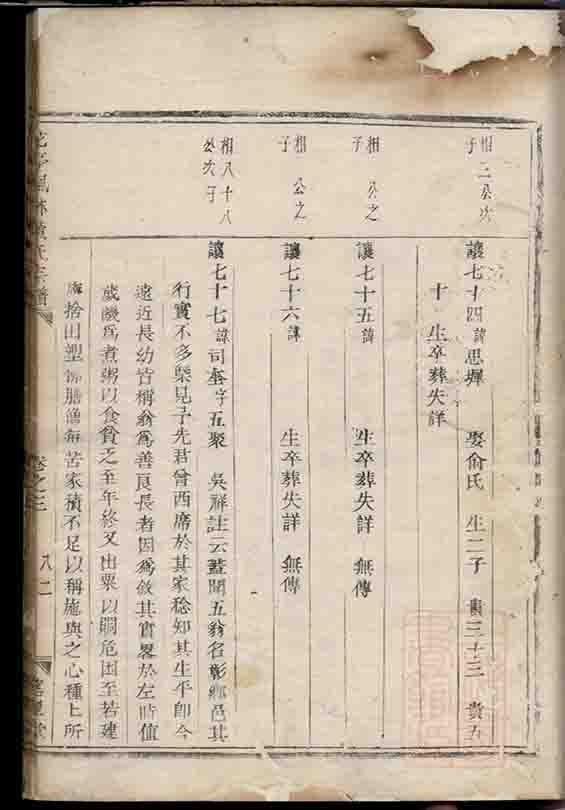 相二公次子
讓七十四諱思墀 娶俞氏 生二子 貴三十三 貴五
十 生卒葬失詳
相 公之子
讓七十五諱 生卒葬失詳 無傳
相 公之子
讓七十六諱 生卒葬失詳 無傳
相八十八公次子
讓七十七諱司奎字五聚 吳祥註云蓋聞五翁名彰鄉邑其
行實不多槩見予先君曾西席於其家稔知其生平即今
遠近長幼皆稱翁為善良長者因為敘其實畧於左時值
歲饑為煮粥以食貧乏至年終又出粟以賙危困至若建
捨田塑佛膳僧每苦家積不足以稱施與之心種上所
鳳林黃氏宗譜 卷之三 八二